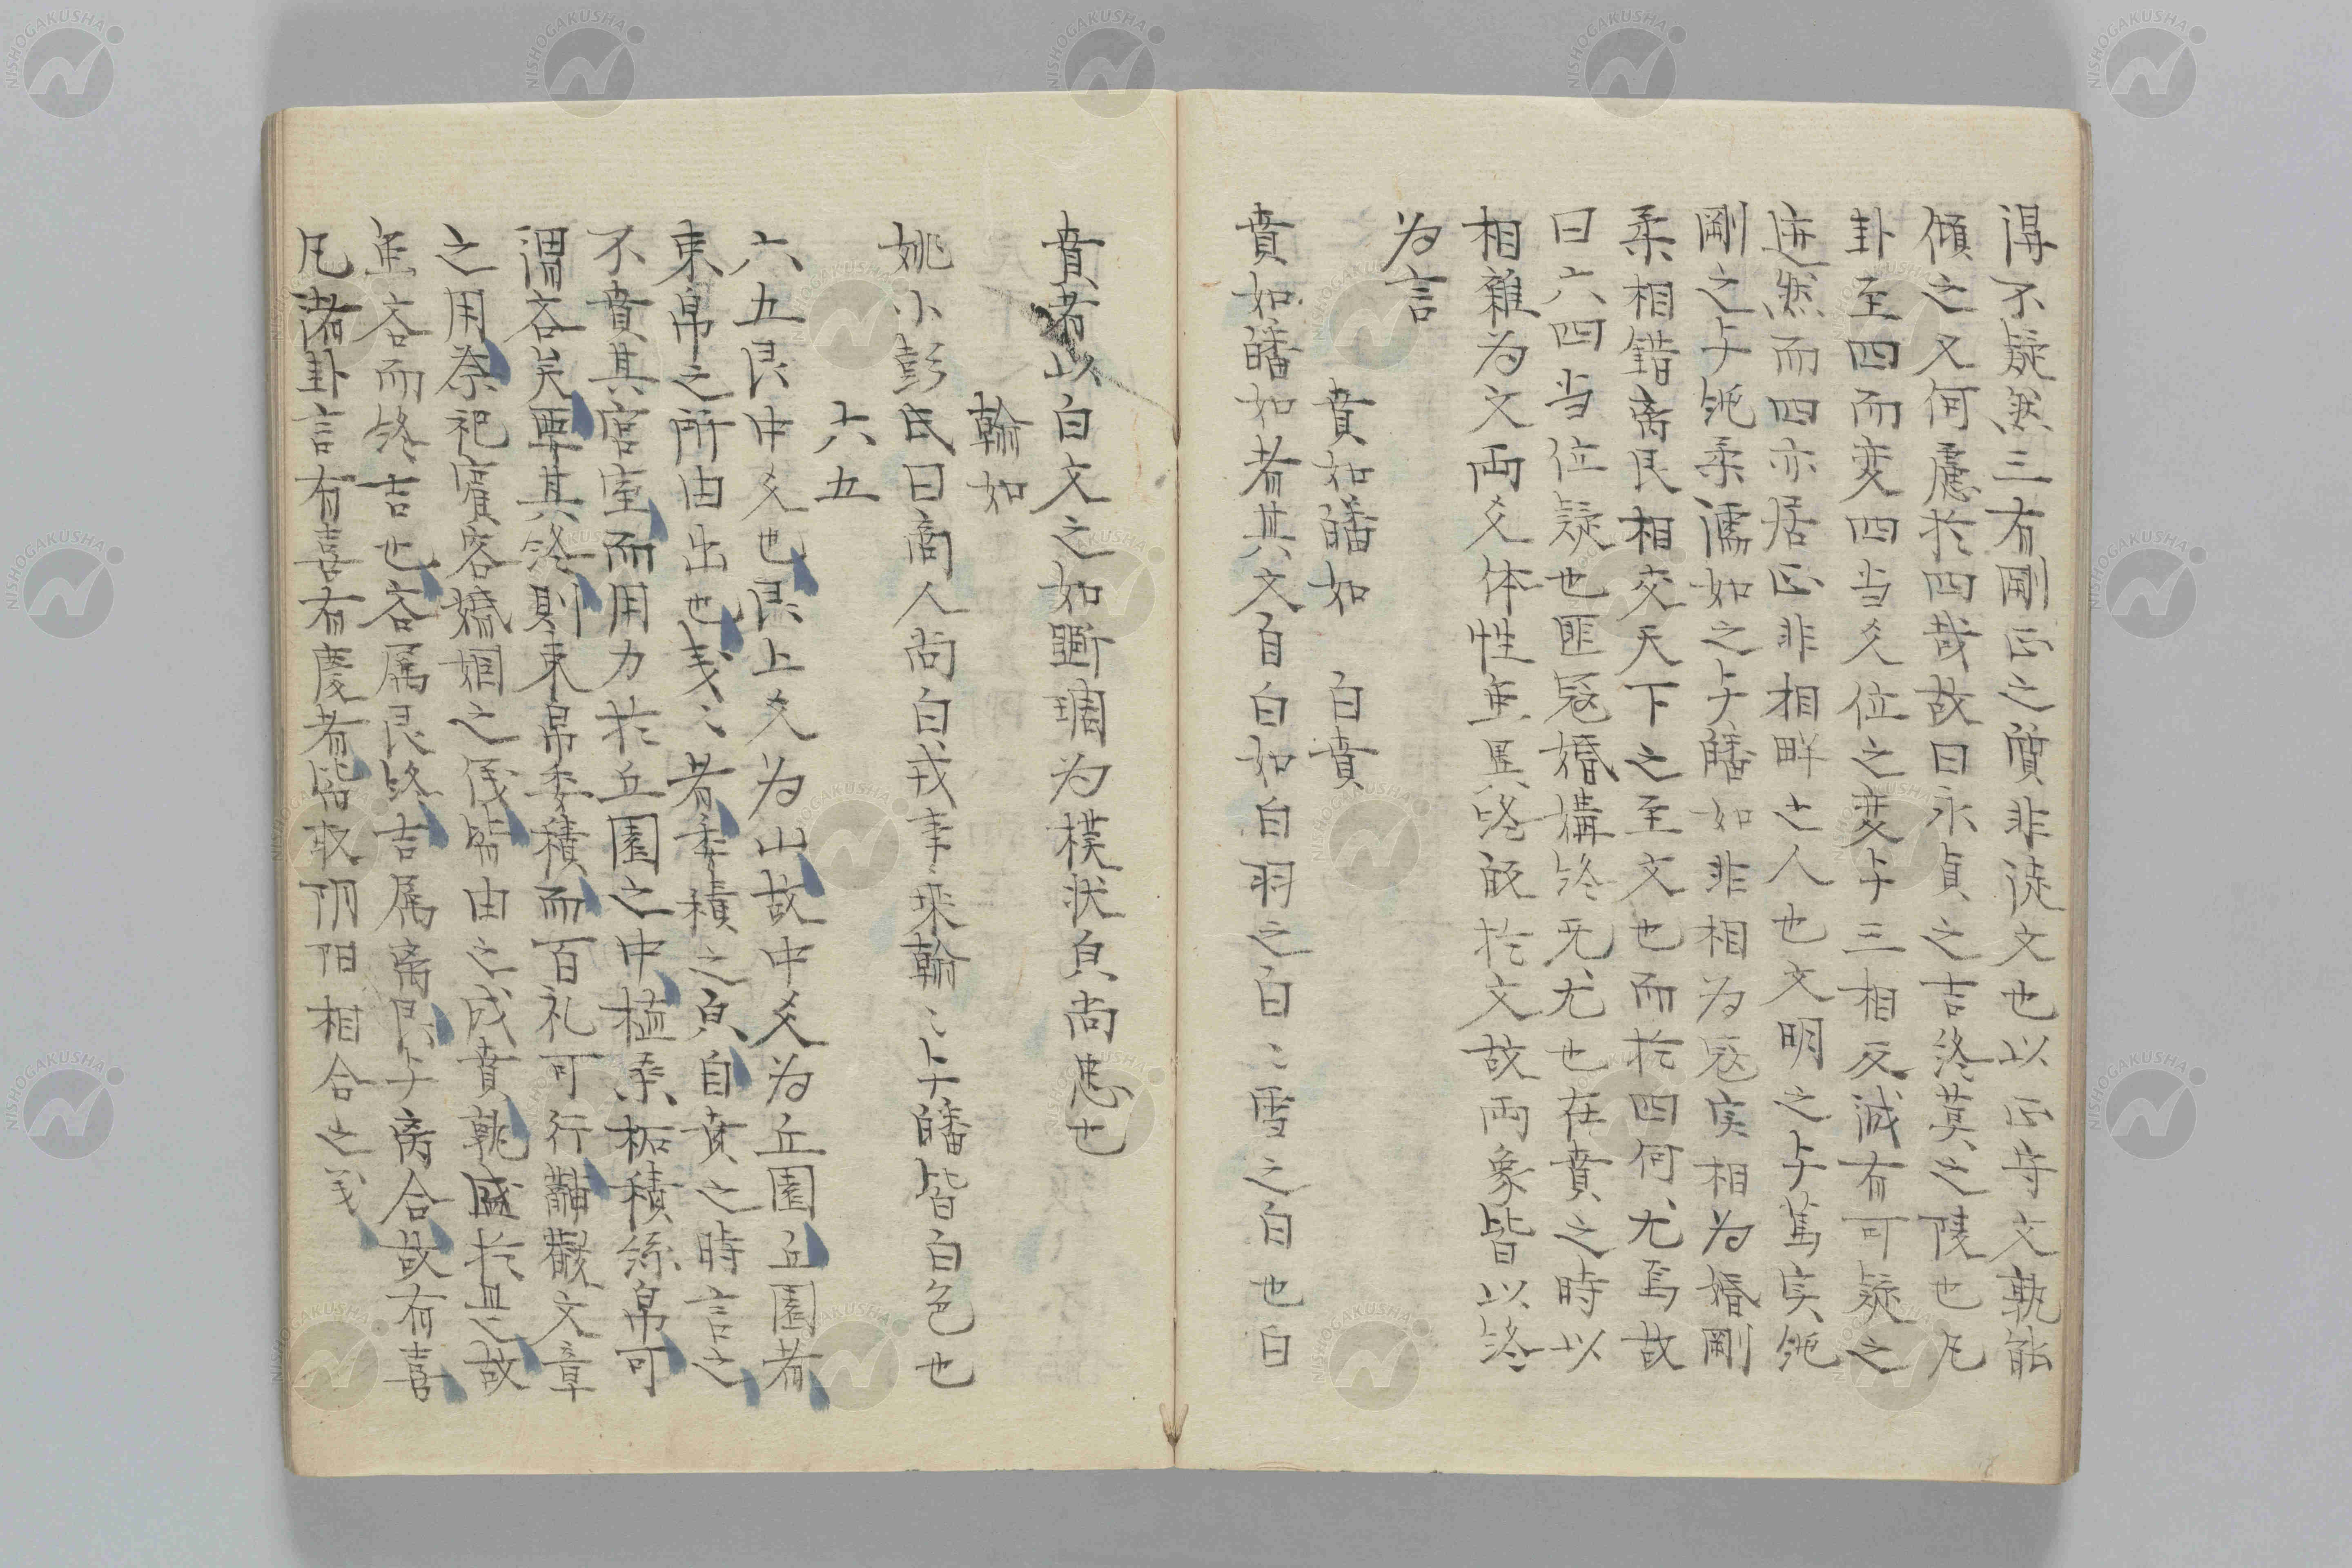 得不疑然三有剛正之質非徒文也以正守文孰能
傾之又何慮於四哉故曰永貞之吉終莫之陵也凡
卦至四而変四当爻位之変与三相反減有可疑之
迹然而四亦居正非相畔之人也文明之与篤実純
剛之与純柔濡如之与皤如非相為寇実相為婚剛
柔相錯离艮相交天下之至文也而於四何尤焉故
曰六四当位疑也匪寇婚媾終无尤也在賁之時以
相雜為文両爻体性虽異咯皈於文故両象皆以終
為言
賁如皤如　白賁
賁如皤如者其文自白如白羽之白〻雪之白也白
賁者以白文之如斲琱為樸状質尚忠也
翰如
姚小彭氏曰商人尚白戎事乘翰〻与皤皆白色也
六五
六五艮中爻也艮上爻為山故中爻為丘園丘園者
束帛之所由出也戋〻者委積之皃自賁之時言之
不賁其宮室而用力於丘園之中植桑柘積絲帛可
謂吝矣要其終則束帛委積而百礼可行黼黻文章
之用祭祀賓客婚姻之儀皆由之成賁孰盛於此故
虽吝而終吉也吝属艮終吉属离艮与离合故有喜
凡諸卦言有喜有慶者皆取阴阳相合之義
NISHOGAKUSHA